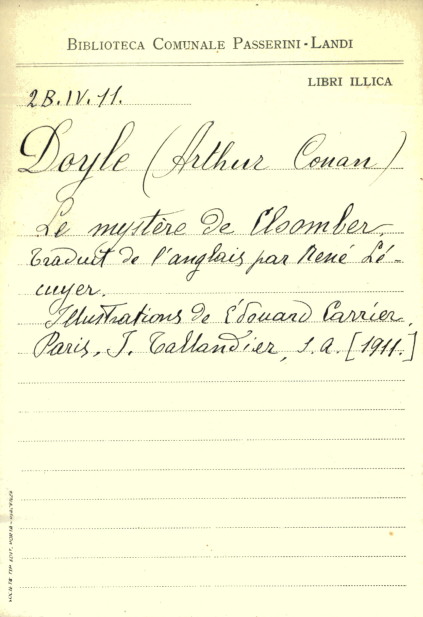 BIBLIOTECA COMUNALE PASSERINI-LANDI
LIBRI ILLICA
2B.IV.11.
Doyle (Arthur Conan)
Le mystère de Cloomber.
Traduit de l'anglais par René Lé-
cuyer.
Illustrations de Édouard Carrier.
Paris, J. Tallandier, s.a. [1911.]